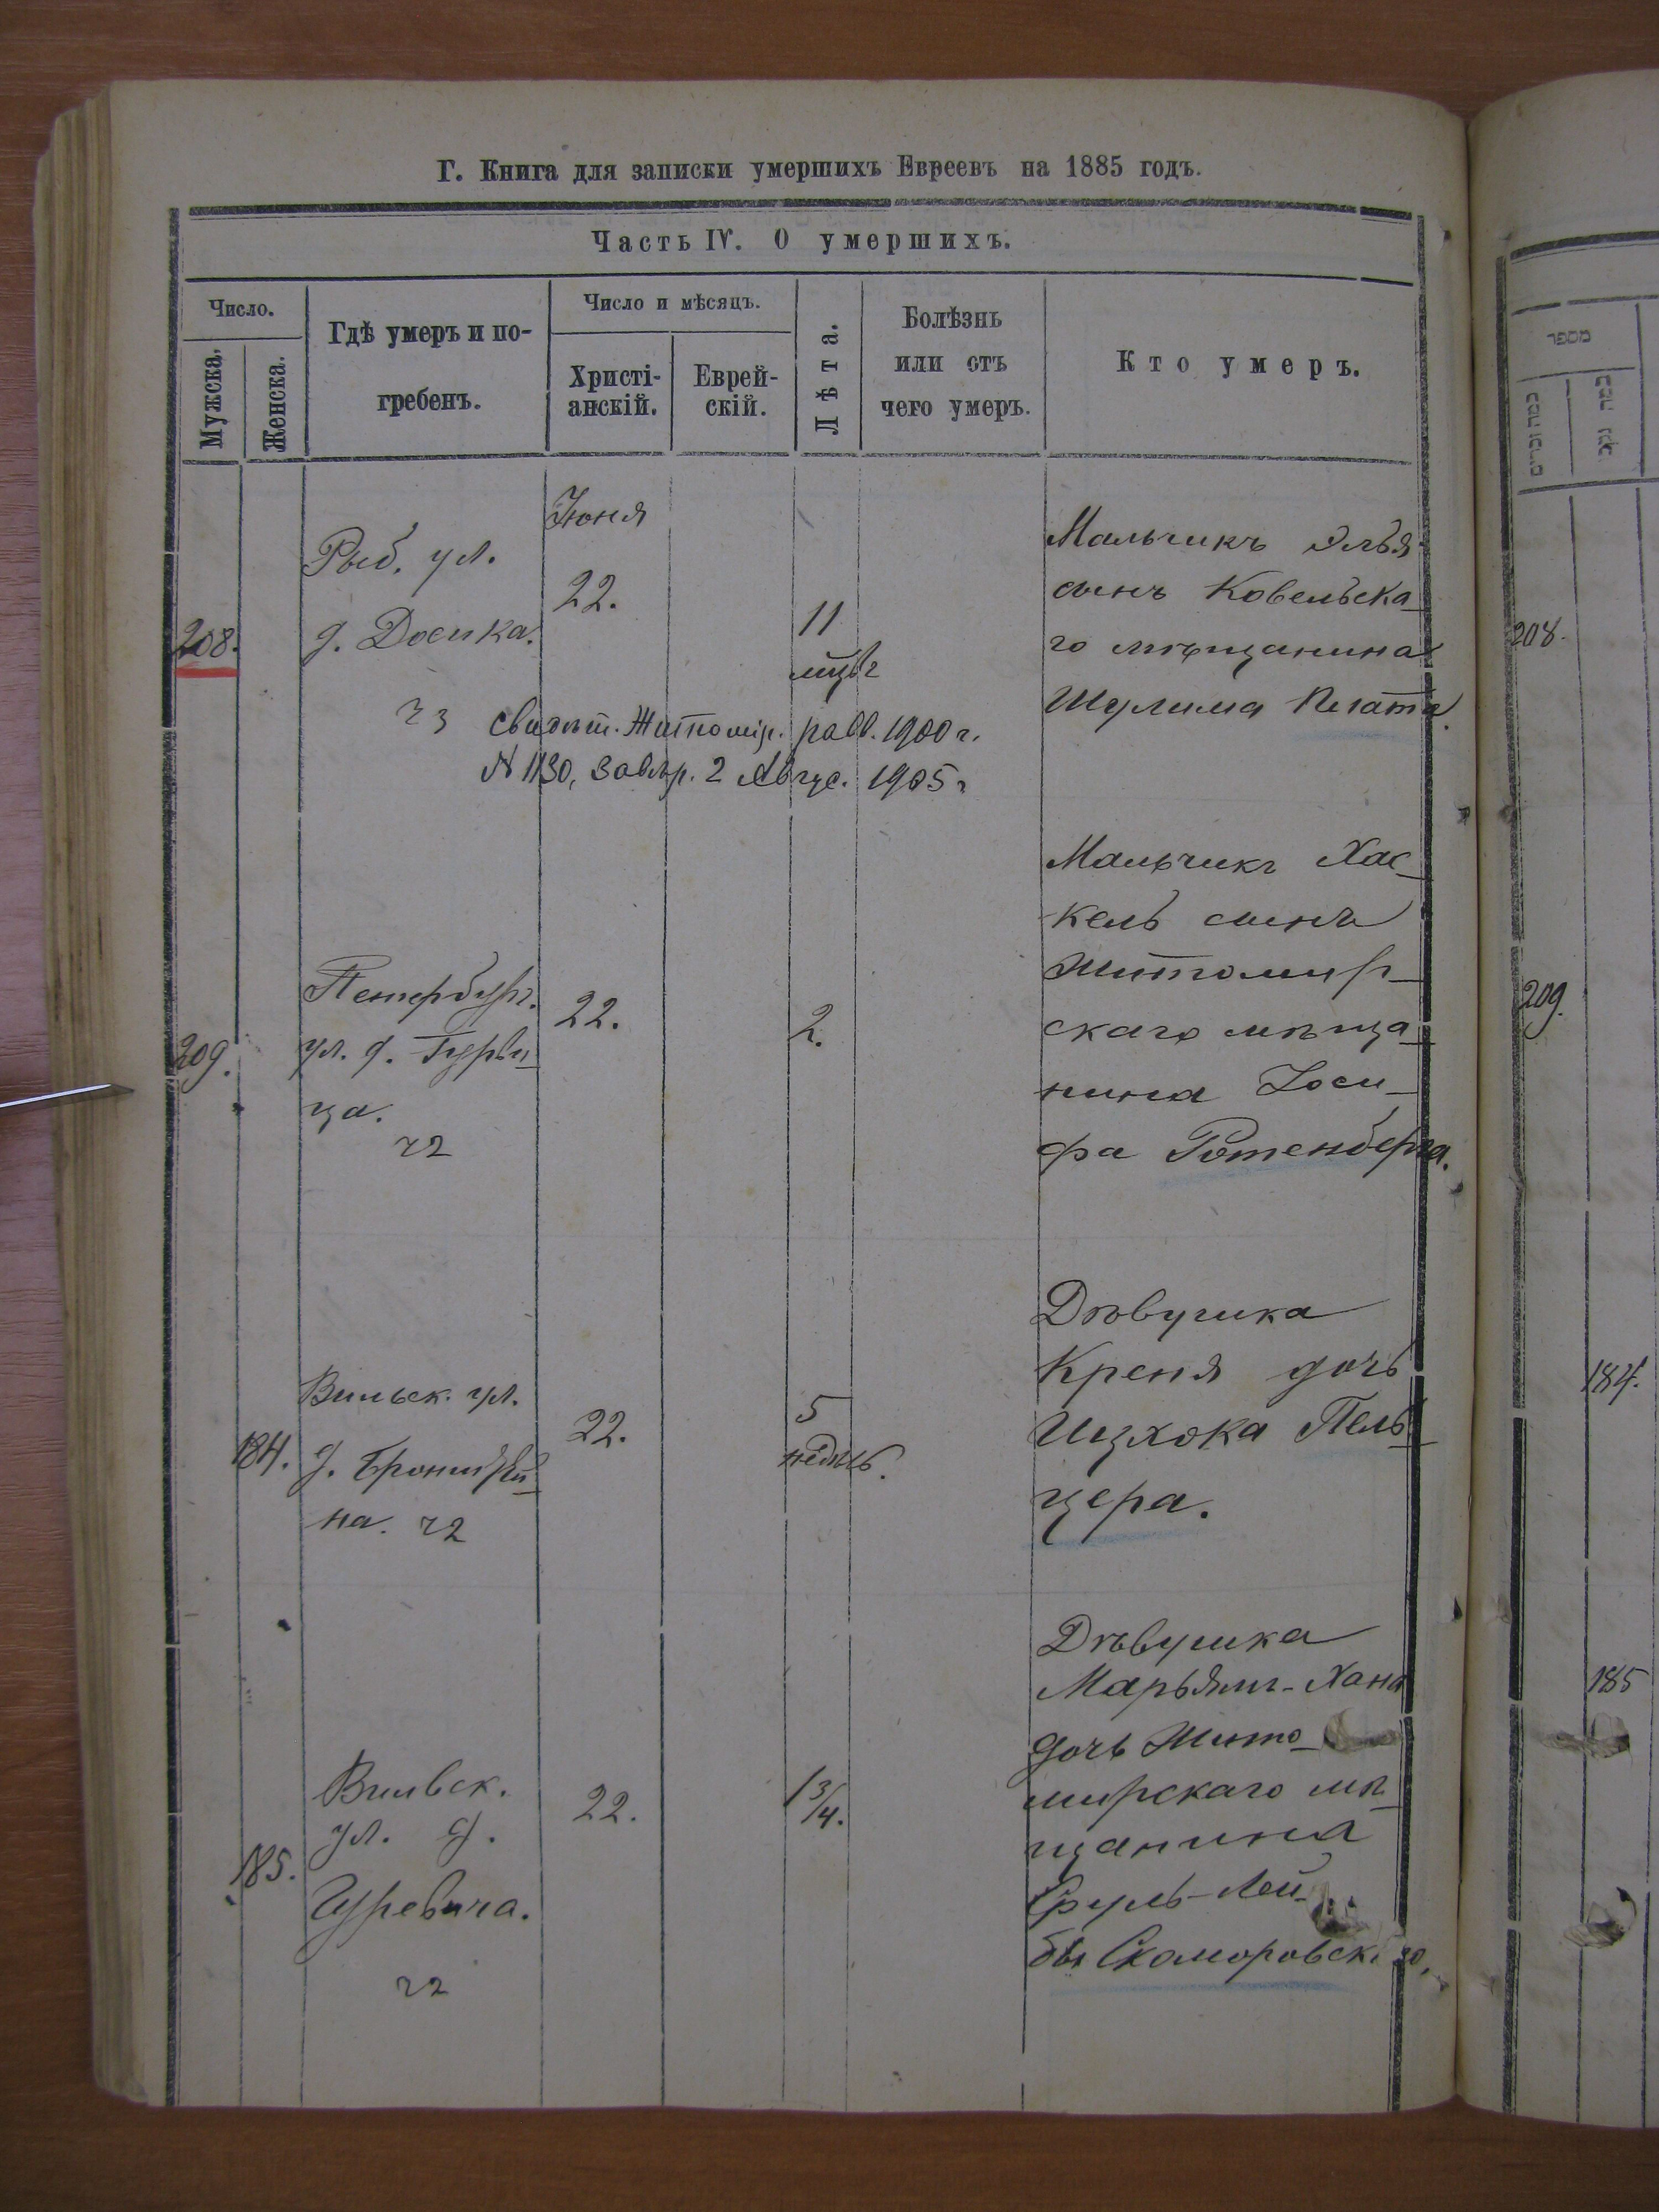 Г. Книга для записки умершихъ Евреевъ на 1885 годъ.
Часть IV. О умершихъ.
Число.
Мужска.
Женска.
Гдѣ умеръ и по-
гребенъ.
Число и мѣсяцъ.
Христі-
анскій.
Еврей-
скій.
Лѣта.
Болѣзнь
или отъ
чего умеръ.
Кто умеръ.
208.
Рыб. ул.
д. Досика.
ч 3
Юня
22.
11
мцвъ
Мальчикъ Элья
сынъ Ковельска-
го мѣщанина
Шулима Плата.
Свидѣт. Житомір. равв. 1900 г.
№ 1130, завѣр. 2 Авгус. 1905 г
209.
Петербург.
ул. д. Гурви-
ца.
ч 2
22.
2.
Мальчикъ Хас-
кель сынъ
Житомир-
скаго мѣща-
нина Іоси-
фа Ротенберга.
184.
Вильск. ул.
д. Бронштей-
на. ч 2
22.
5
недѣль.
Дѣвушка
Креня дочь
Ицхока Пель-
цера.
185.
Вильск.
ул. д.
Гуревича.
ч 2
22.
1 3/4.
Дѣвушка
Марьямъ-Хана
дочь Жито-
мирскаго мѣ-
щанина
Сруль-Лей-
бы Скоморовскаго.
מספר
כמה זכרים
208.
209.
184.
185